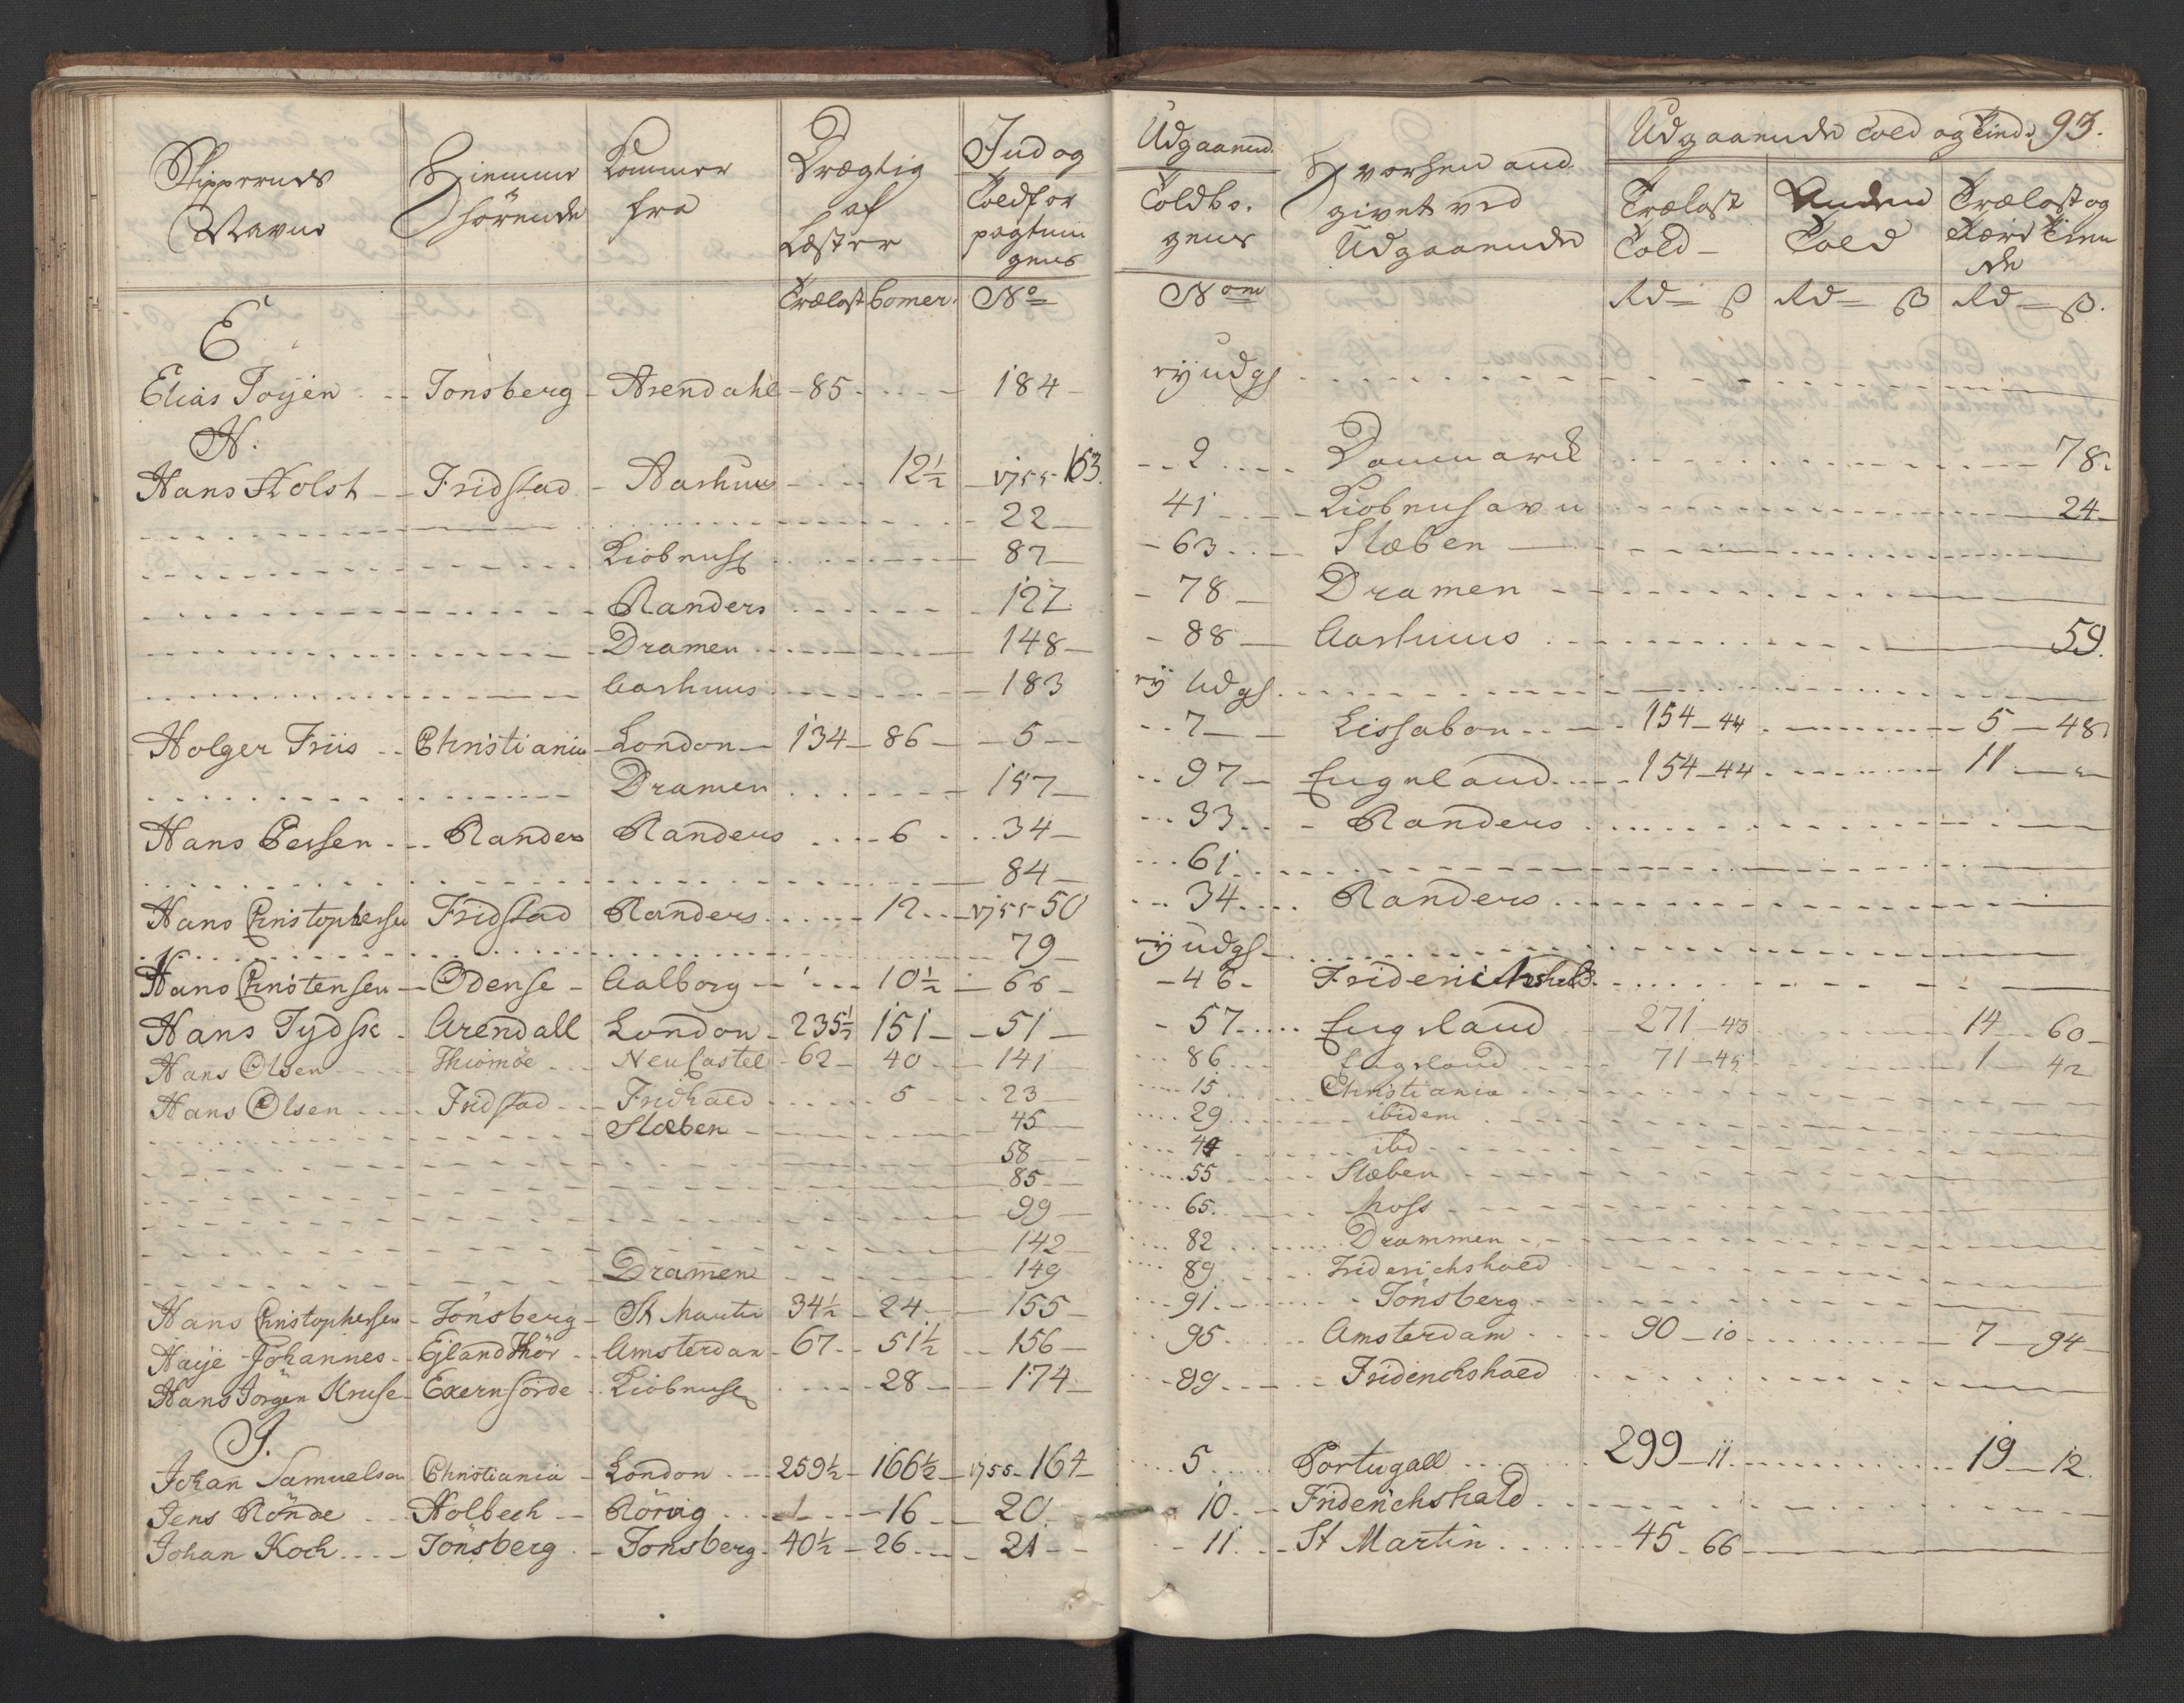 Skippernes Navne | Hiemme hörende | Kommer fra | Drægtig af Læster | Ind og Toldfor pagtnin gens
Trælast | Comer. | No
E
Elias Töyen | Tönsberg | Arendahl | 85 | 184
H.
Hans Holst | Fridstad | Aarhuus | 12½ | 1755-163.
22
Kiöbenh | 87
Randers | 127
Dramen | 148
Aarhuus | 183
Holger Friis | Christiania | London | 134 | 86 | 5
Dramen | 157
Hans Persen | Randers | Randers | 6 | 34
84
Hans Christophersen | Fridstad | Randers | 12 | 1755-50
79
Hans Christensen | Odense | Aalborg | 10½ | 66
Hans Tydsk | Arendall | London | 235½ | 151 | 51
Hans Olsen | Thiomöe | NeuCastel | 62 | 40 | 141
Hans Olsen | Fridstad | Fridhald | 5 | 23
Slæben | 45
58
85
99
142
Dramen | 149
Hans Christophersen | Tönsberg | St Martin | 34½ | 24 | 155
Haye Johannes | Ejland Hör | Amsterdam | 67 | 51½ | 156
Hans Jörgen Kruse | Exernförde | Kiöbenh | 28 | 174
J.
Johan Samuelsen | Christiania | London | 259½ | 166½ | 1755-164
Jens Rönde | Holbech | Rörvig | 16 | 20
Johan Koch | Tönsberg | Tonsberg | 40½ | 26 | 21
93.
Udgaaende Told og Tiende
Udgaaend. Toldbo. gens | Hvorhen and givet ved Udgaaende | Trælast Told | Anden Told | Trælast og
Nom | Rd ß | Rd ß | Rd ß.
ey udg
2 | Danmarck | 78.
41 | Kiöbenhavn | 24
63 | Slæben
78 | Dramen
88 | Aarhuus | 59.
ey Udg
7 | Lissabon | 154-44 | 5-48
97 | Engeland | 154-44 | 11
33 | Randers
61
34 | Randers
ey udg
46 | Friderichshald
57 | Engeland | 271-43 | 14-60
86 | Engeland | 71-45 | 1-42
15 | Christiania
29 | ibidem
44 | ibd
55 | Slæben
65 | Moss
82 | Drammen
89 | Friderichshald
91 | Tönsberg
95 | Amsterdam | 90-10 | 7-94
99 | Friderichshald
5 | Portugall | 299-11 | 19-12.
10 | Friderichshald
11 | St Martin | 45-66